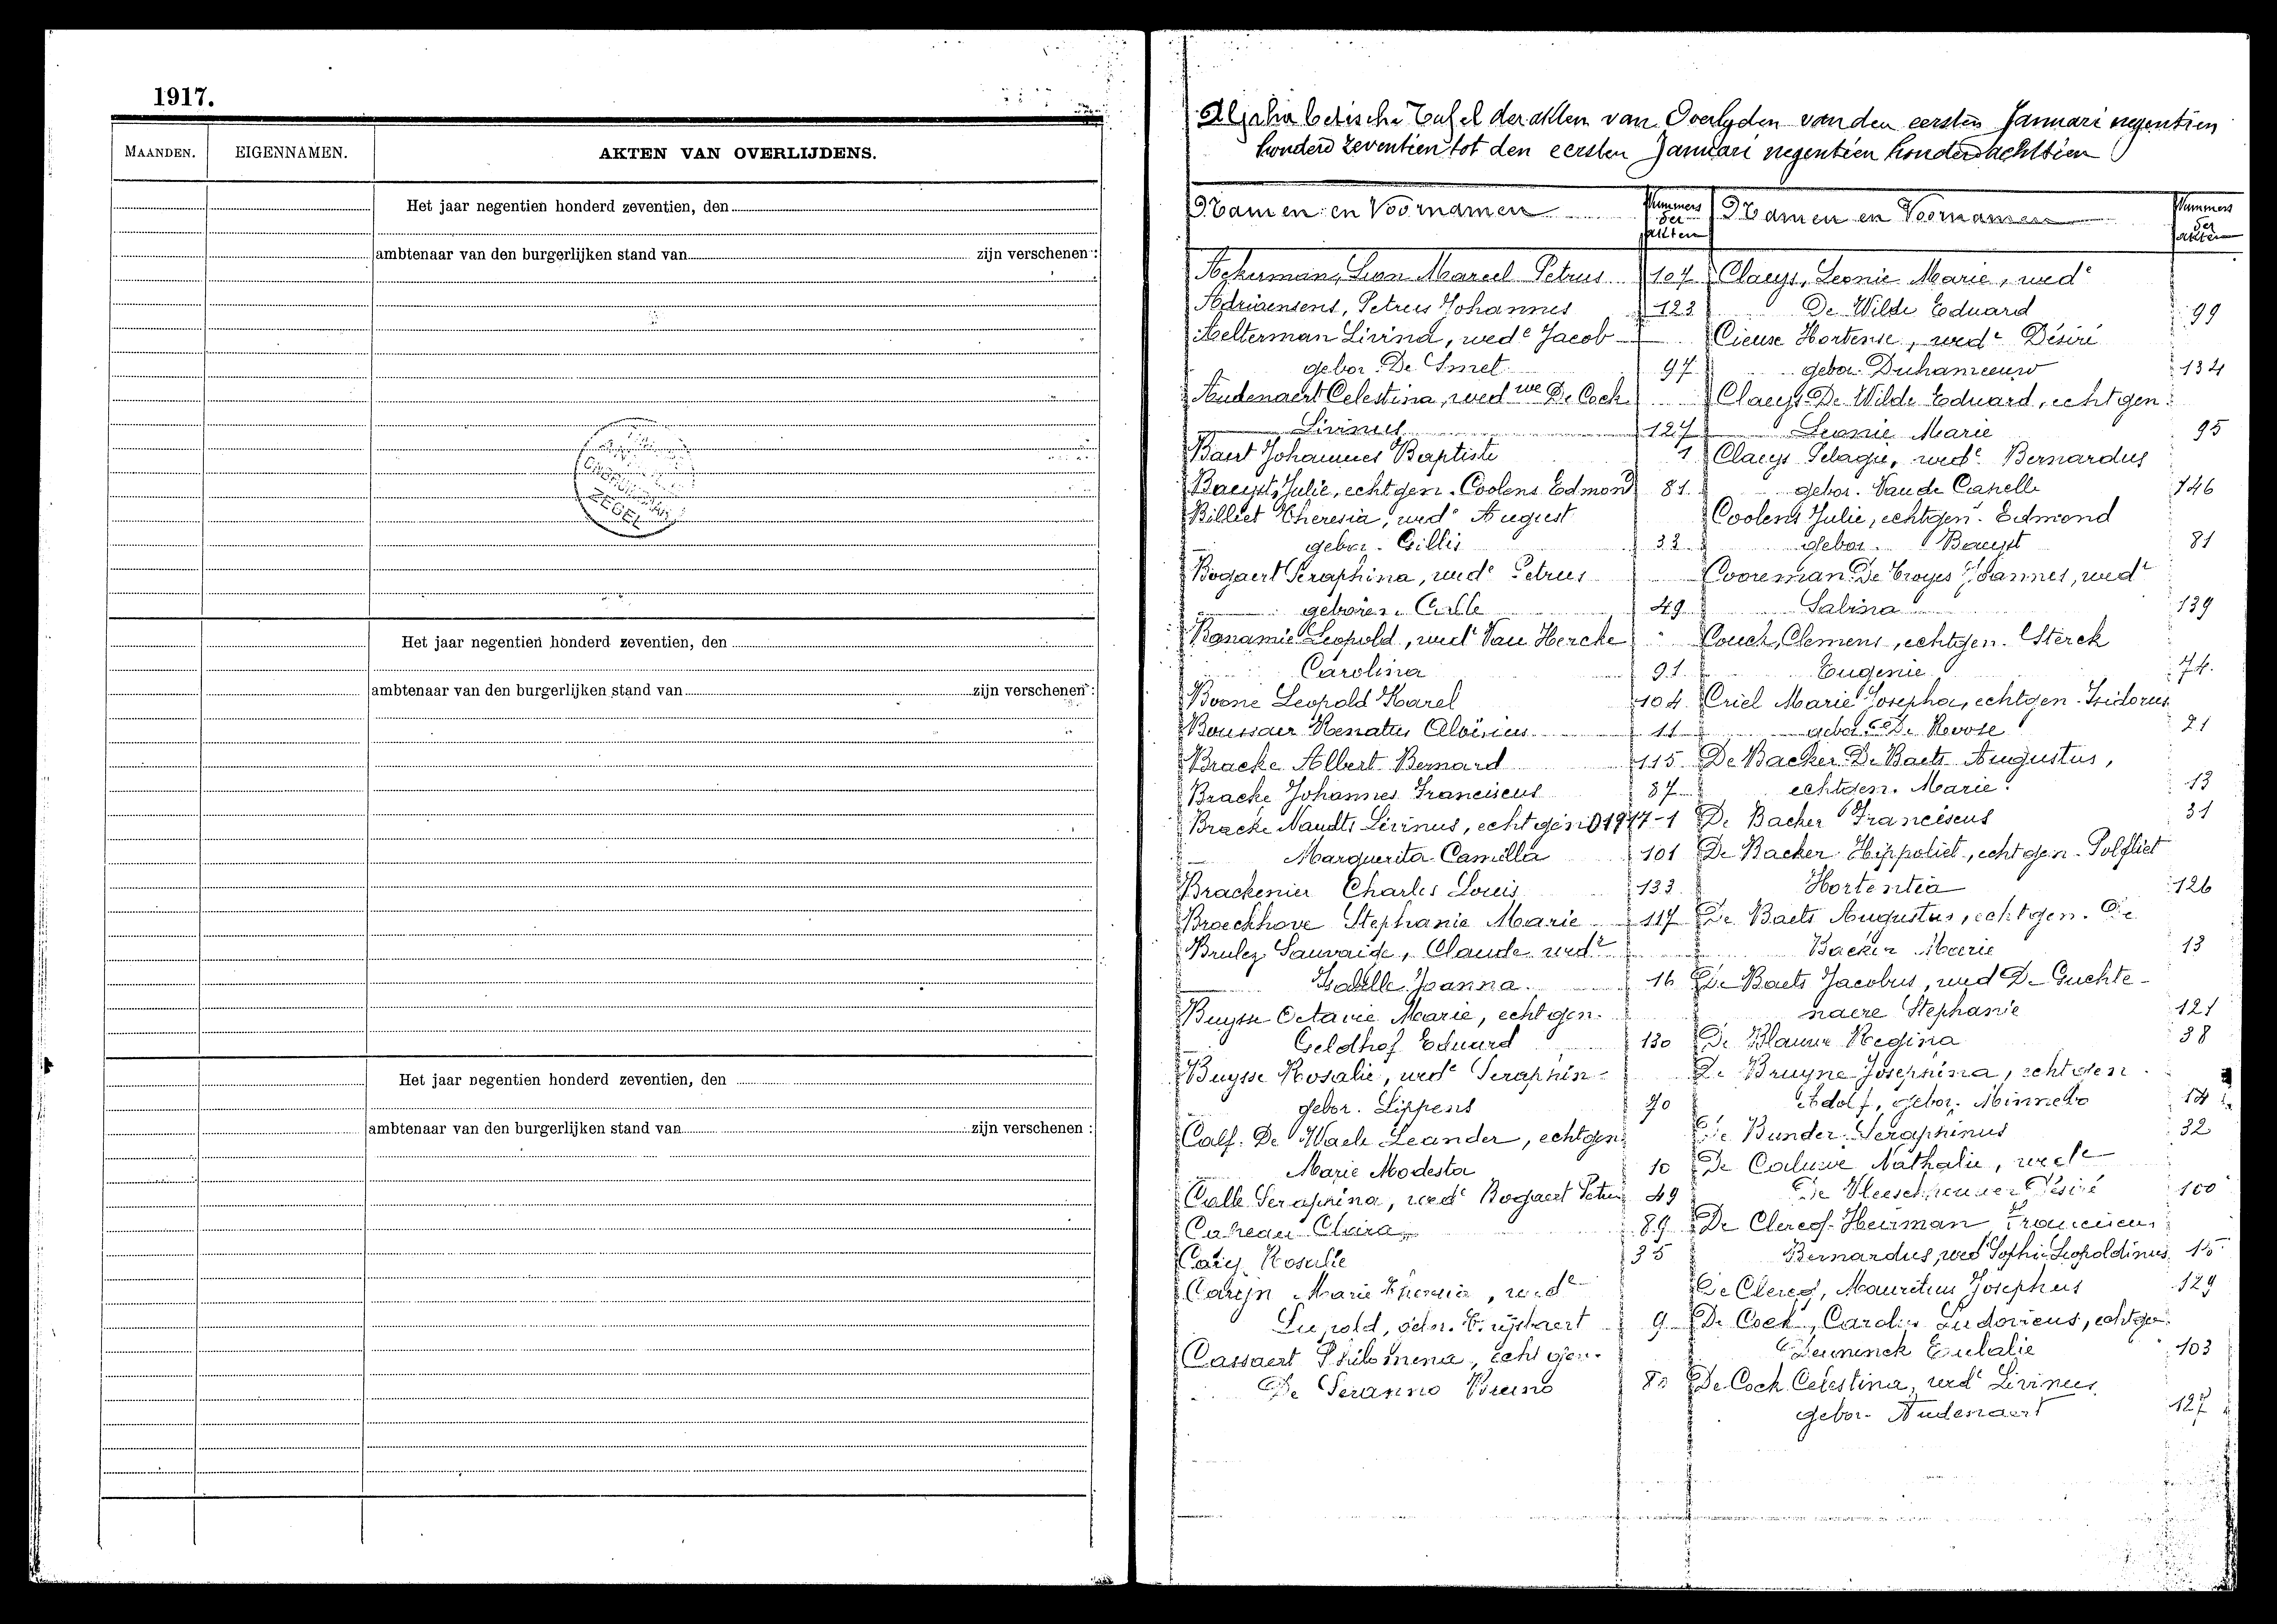 1917.
MAANDEN. EIGENNAMEN. AKTEN VAN OVERLIJDENS.
Het jaar negentien honderd zeventien, den
ambtenaar van den burgerlijken stand van zijn verschenen :
ZEGEL
Het jaar negentien honderd zeventien, den
ambtenaar van den burgerlijken stand van zijn verschenen :
Het jaar negentien honderd zeventien, den
ambtenaar van den burgerlijken stand van zijn verschenen :
Alphabetische Tafel der akten van Overlyden van den eersten Januari negentien
honderd zeventien tot den eersten Januari negentien honderd achttien
Namen en Voornamen Nummers der akten
Ackerman, Leon Marcel Petrus 107
Adriaensens, Petrus Johannes 123
Aelterman Livina, wede Jacob
gebor. De Smet 97
Audenaert Celestina, wed we De Cock
Livinus 127
Baert Johannes Baptiste 1
Baeyst, Julie, echtgen. Coolens Edmond 81
Billiet Theresia, wede August
gebor. Gillis 33
Bogaert Seraphina, wede Petrus
geboren Calle 49
Bonamie Leopold, wede Van Hercke
Carolina 91
Boone Leopold Karel 104
Boussaer Renatus Aloïsius 11
Bracke Albert Bernard 115
Bracke Johannes Franciscus 87
Bracke Naudts Livinus, echtgen 01917-1
Marguerita Camilla 101
Brackenier Charles Louis 133
Broeckhove Stephanie Marie 117
Brulez Sauvaige, Claude wede
Isabelle Joanna 16
Buysse Octavie Marie, echtgen.
Geldhof Eduard 130
Buysse Rosalie, wede Seraphin
gebor. Lippens 70
Calf. De Waele Leander, echtgen
Marie Modesta 10
Calle Seraphina, wede Bogaert Petrus 49
Clara 89
Rosalie 35
Carijn Marie Theresia, wede
9
Cassaert Philomena, echtgen.
De Seranno Bruno
Namen en Voornamen Nummers der akten
Claeys, Leonie Marie, wede
De Wilde Eduard 99
Cieuse Hortense, wede Désiré
gebor. Duhameeuw 134
Claeys De Wilde Eduard, echtgen.
Leonie Marie 95
Claeys Pelagie, wede Bernardus
gebor. Van de Capelle 146
Coolens Julie, echtgen. Edmond
gebor. Baeyst 81
Cooreman De Troyer Joannes, wede
Sabina 139
Couck, Clemens, echtgen. Sterck
Eugenie 74.
Criel Marie Josepha, echtgen. Isidorus
gebor. De Roose 21
De Backer De Baets Augustus,
echtgen. Marie 13
De Backer Franciscus 31
De Backer Hippoliet, echtgen. Polfliet
Hortentia 126
De Baets Augustus, echtgen. De
Backer Marie 13
De Baets Jacobus, wed De Guchte-
naere Stephanie 121
De Blauwe Regina 38
De Bruyne Josephina, echtgen
Adolf, gebor. Minnebo 14
De Bunder Seraphinus 32
De Caluwe Nathalie, wede
De Vleeschouwer Désiré 100
De Clercq. Heirman Franciscus
Bernardus, wed Sophie Leopoldinus 15
De Clercq, Mauritius Josephus 129
De Cock, Carolus Ludovicus, echtgen.
Eulalie 103
De Cock Celestina, wede Livinus
gebor. Audenaert 127